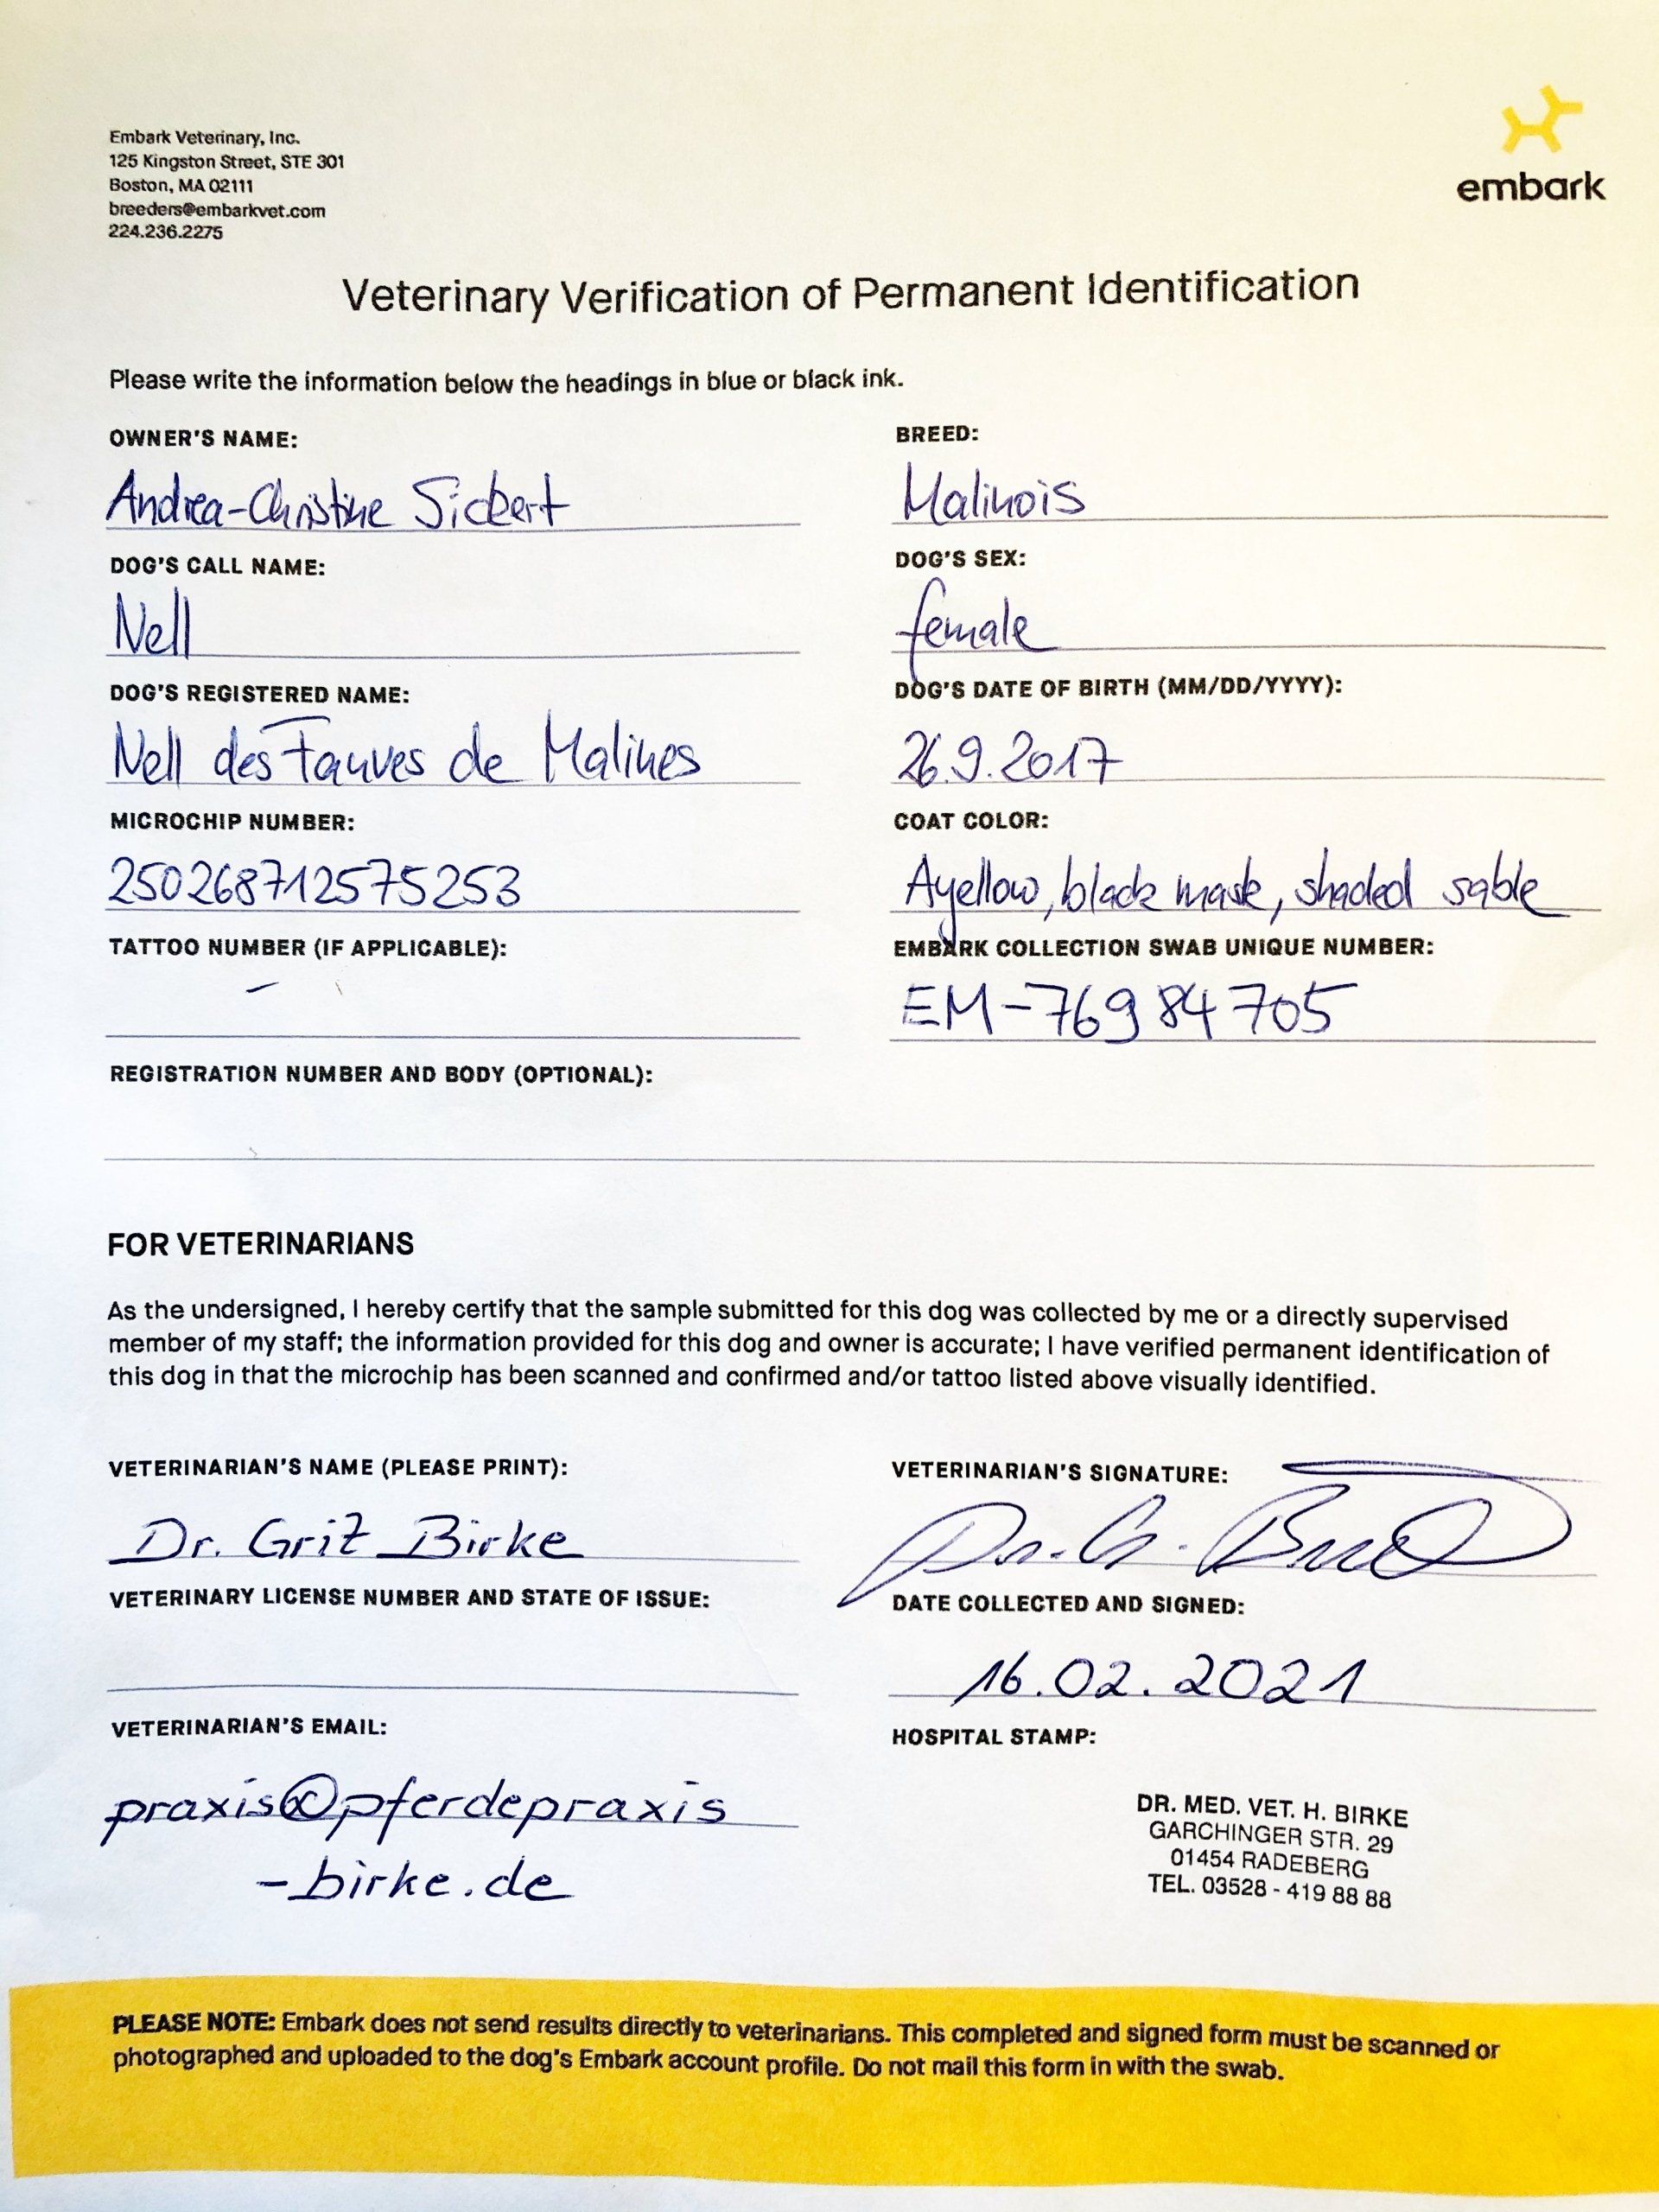 Embark Veterinary, Inc.
125 Kingston Street, STE 301
Boston, MA 02111
breeders@embarkvet.com
224.236.2275
embark
Veterinary Verification of Permanent Identification
Please write the information below the headings in blue or black ink.
OWNER'S NAME:
Andrea-Christine Sickert
BREED:
Malinois
DOG'S CALL NAME:
Nell
DOG'S SEX:
female
DOG'S REGISTERED NAME:
Nell des Fauves de Malines
DOG'S DATE OF BIRTH (MM/DD/YYYY):
26.9.2017
MICROCHIP NUMBER:
250268712575253
COAT COLOR:
Ayellow, black mask, shaded sable
TATTOO NUMBER (IF APPLICABLE):
-
EMBARK COLLECTION SWAB UNIQUE NUMBER:
EM-76984705
REGISTRATION NUMBER AND BODY (OPTIONAL):
FOR VETERINARIANS
As the undersigned, I hereby certify that the sample submitted for this dog was collected by me or a directly supervised
member of my staff; the information provided for this dog and owner is accurate; I have verified permanent identification of
this dog in that the microchip has been scanned and confirmed and/or tattoo listed above visually identified.
VETERINARIAN'S NAME (PLEASE PRINT):
Dr. Grit Birke
VETERINARIAN'S SIGNATURE:
Dr. G.
VETERINARY LICENSE NUMBER AND STATE OF ISSUE:
DATE COLLECTED AND SIGNED:
16.02.2021
VETERINARIAN'S EMAIL:
praxis@pferdepraxis
-birke.de
HOSPITAL STAMP:
DR. MED. VET. H. BIRKE
GARCHINGER STR. 29
01454 RADEBERG
TEL. 03528 - 419 88 88
PLEASE NOTE: Embark does not send results directly to veterinarians. This completed and signed form must be scanned or
photographed and uploaded to the dog's Embark account profile. Do not mail this form in with the swab.